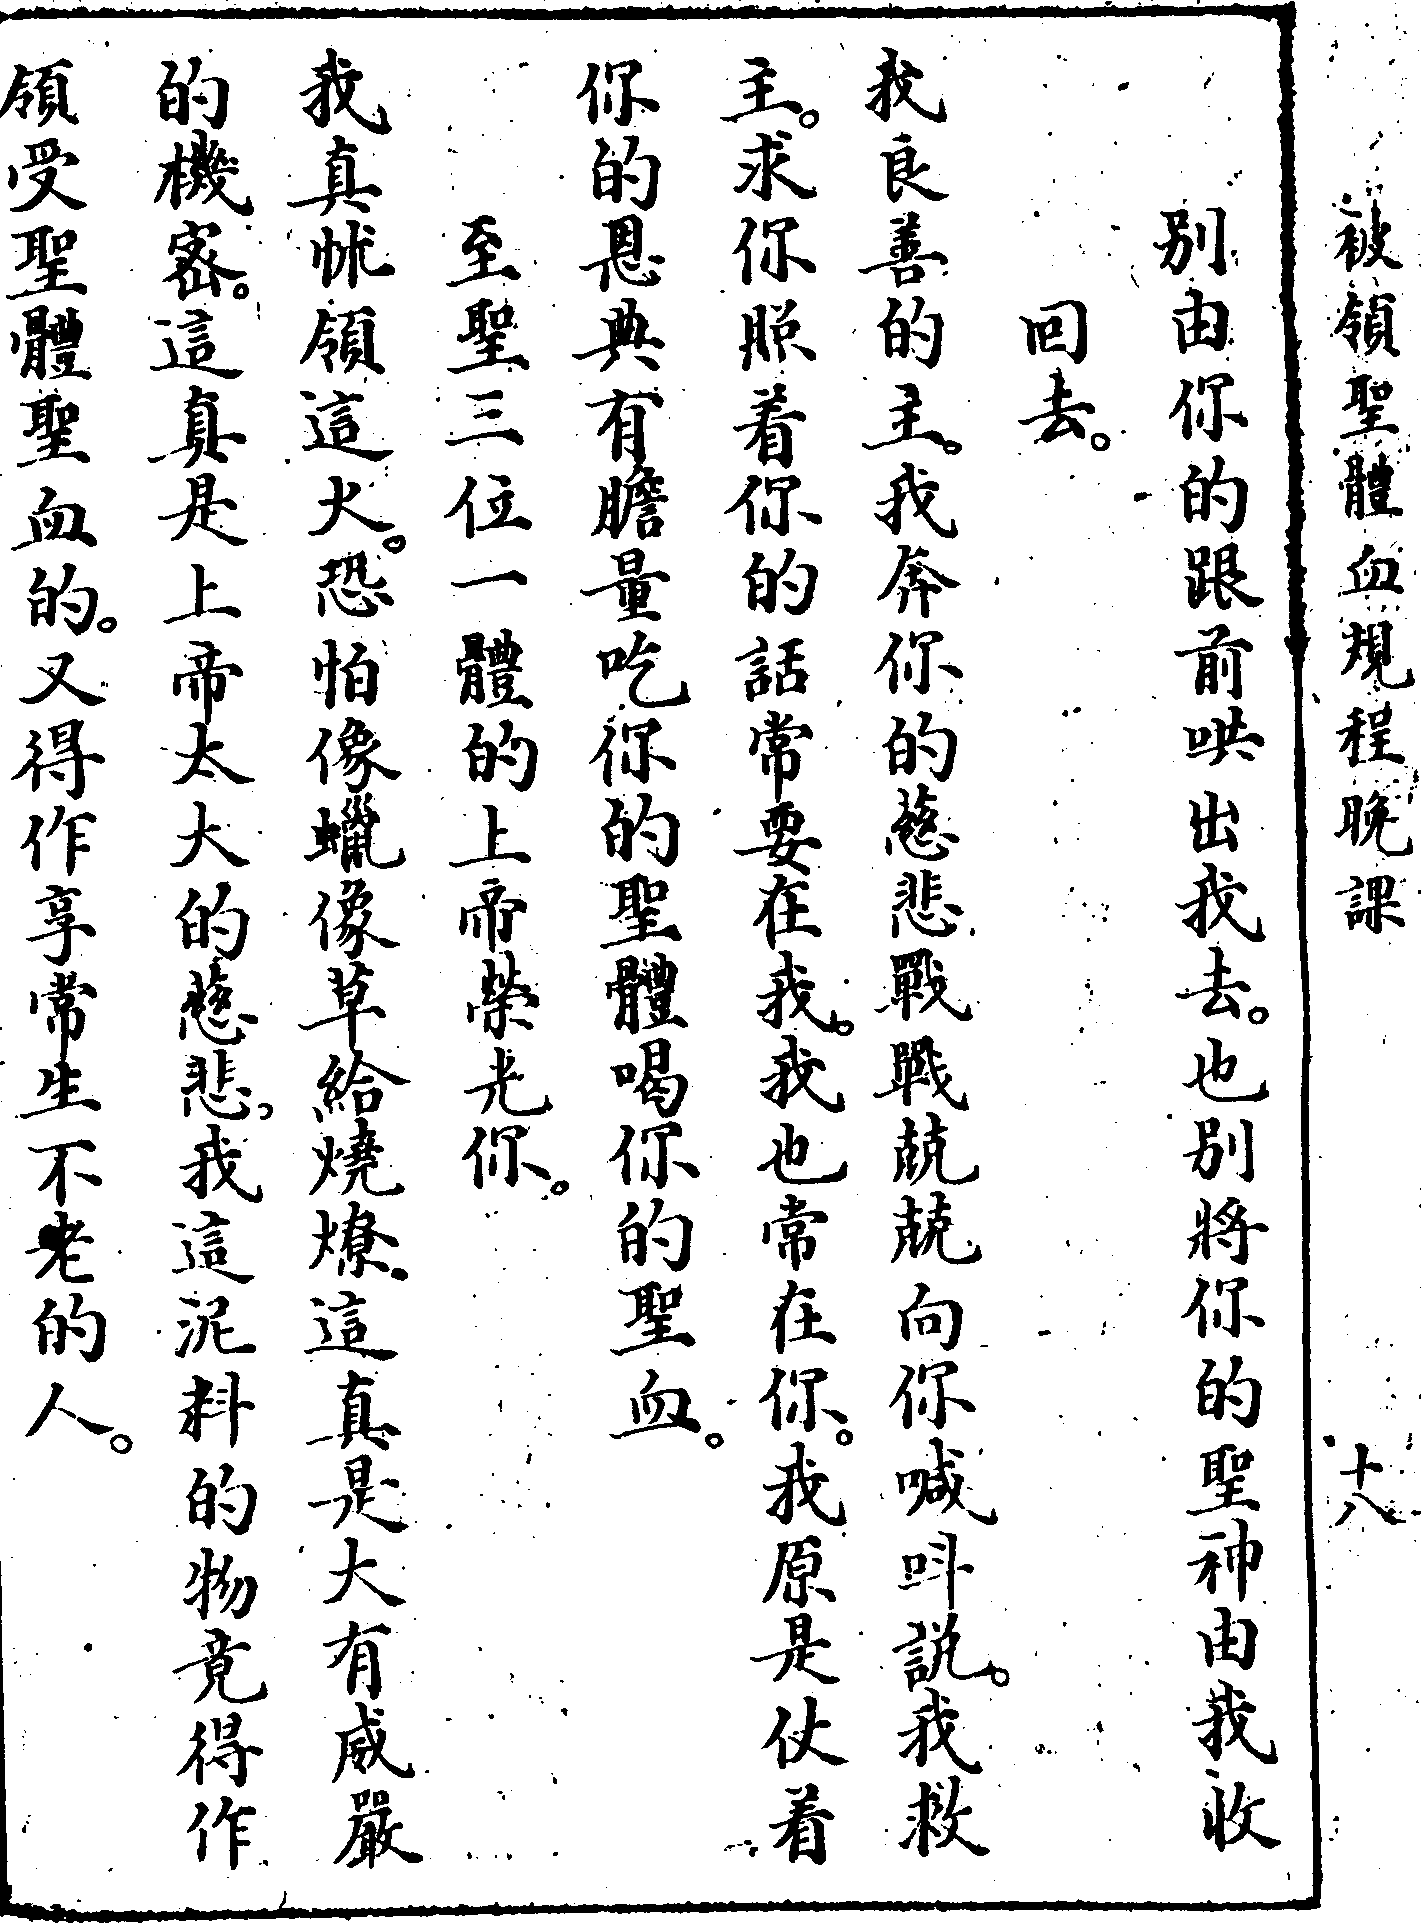 被領聖體血規程晚課 十八
別由你的跟前哄出我去。也別將你的聖神由我收
回去。
我良善的主。我奔你的慈悲戰戰兢兢向你喊呌説。我救
主。求你照着你的話常要在我。我也常在你。我原是仗着
你的恩典有膽量吃你的聖體喝你的聖血。
至聖三位一體的上帝榮光你。
我真怵領這火。恐怕像蠟像草給燒燎。這真是大有威嚴
的機密。這真是上帝太大的慈悲。我這泥料的物竟得作
領受聖體聖血的。又得作享常生不老的人。